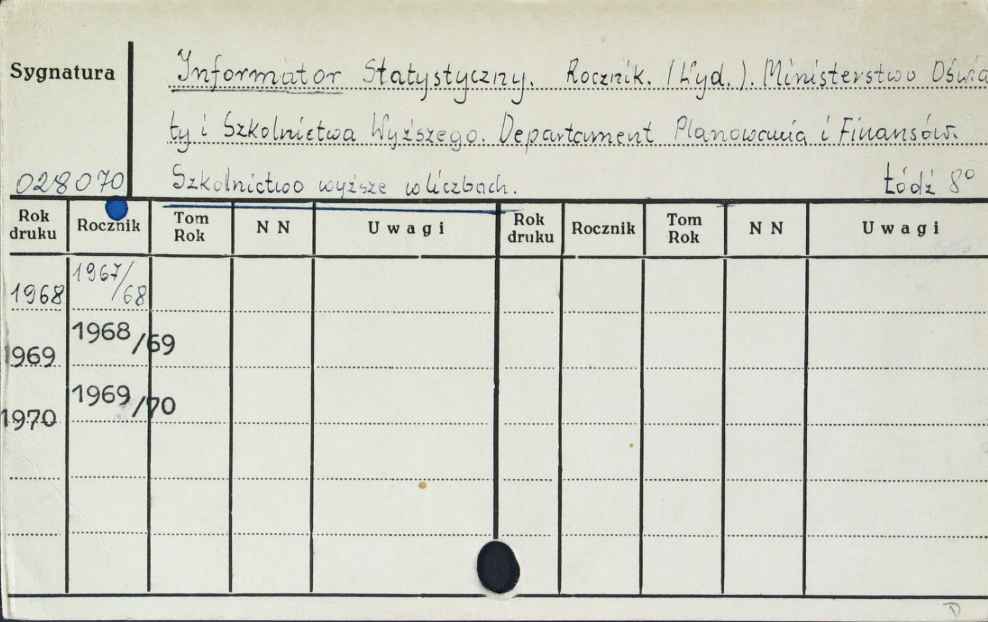 Sygnatura
Informator Statystyczny. Rocznik. (Wyd.). Ministerstwo Oświa
ty i Szkolnictwa Wyższego. Departament Planowania i Finansów.
028070
Szkolnictwo wyższe w liczbach. Łódź 8°
Rok druku Rocznik Tom Rok NN Uwagi Rok druku Rocznik Tom Rok NN Uwagi
1968 1967/68
1969 1968/69
1970 1969/70